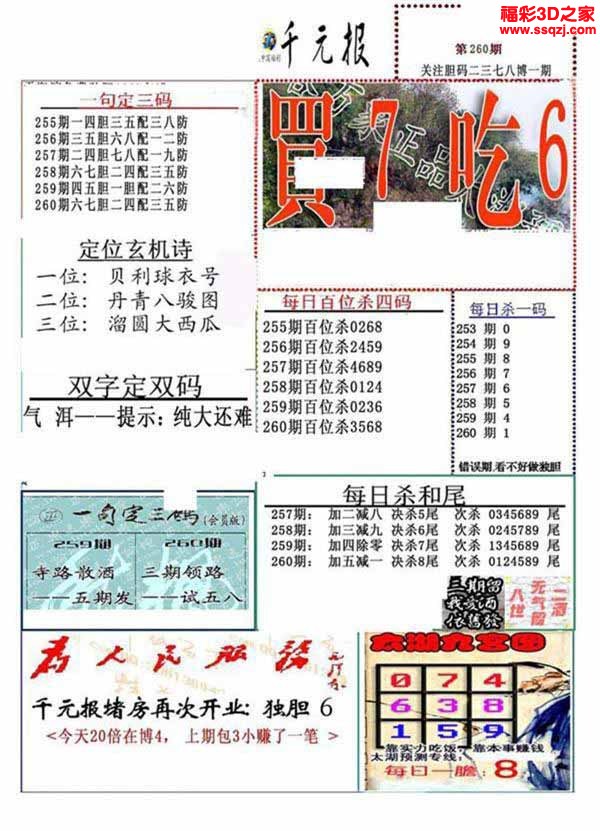 福彩3D之家
www.ssqzj.com
千元报
中国福利
第260期
关注胆码二三七八博一期
一句定三码
255期一四胆三五配三八防
256期三五胆六八配一二防
257期二四胆七八配一九防
258期六七胆二四配三五防
259期四五胆一胆配二六防
260期六七胆二四配三五防
買7吃6
定位玄机诗
一位: 贝利球衣号
二位: 丹青八骏图
三位: 溜圆大西瓜
每日百位杀四码
255期百位杀0268
256期百位杀2459
257期百位杀4689
258期百位杀0124
259期百位杀0236
260期百位杀3568
每日杀一码
253 期 0
254 期 9
255 期 8
256 期 7
257 期 6
258 期 5
259 期 4
260 期 1
错误期,看不好做独胆
双字定双码
气 洱——提示:纯大还难
一句定三码(会员版)
259期
寺路散酒
——五期发
260期
三期领路
——试五八
每日杀和尾
257期: 加二减八 决杀5尾 次杀 0345689 尾
258期: 加三减九 决杀6尾 次杀 0245789 尾
259期: 加四除零 决杀7尾 次杀 1345689 尾
260期: 加五减一 决杀8尾 次杀 0124589 尾
为人民服务
千元报堵房再次开业: 独胆 6
<今天20倍在博4, 上期包3小赚了一笔>
太湖九宫图
0 7 4
6 3 8
1 5 9
靠实力吃饭,靠本事赚钱
太湖预测专线:
每日一胆:8